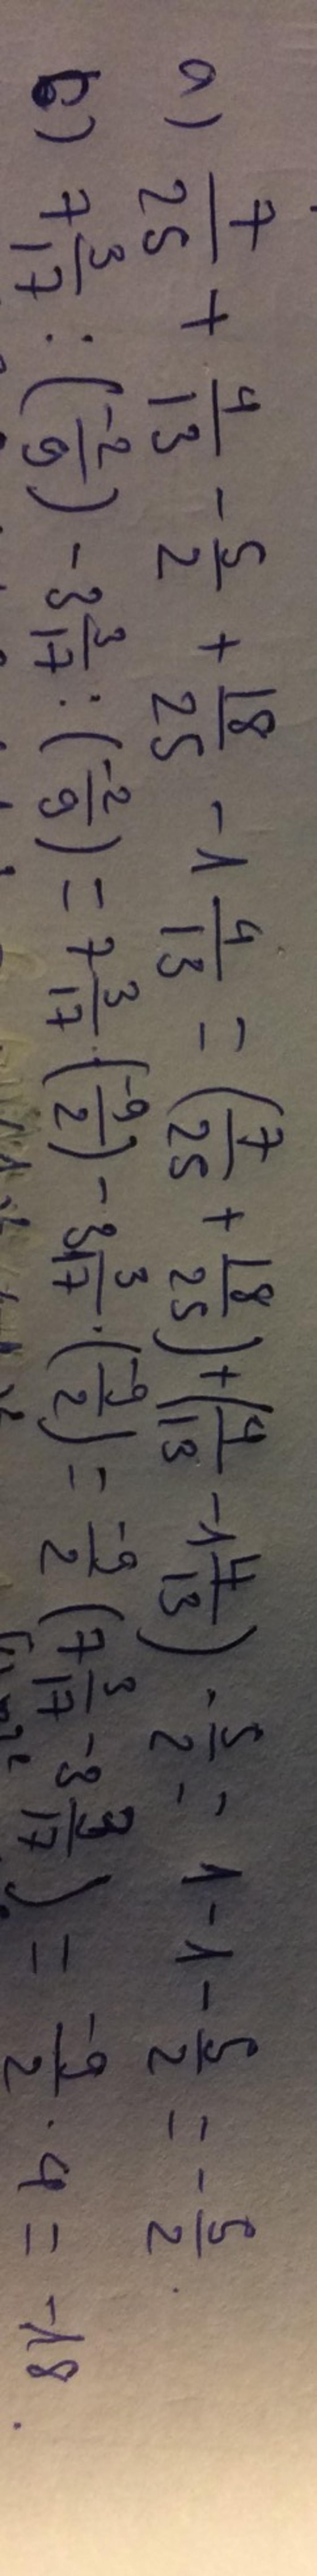 a) 7/25 + 4/13 - 5/2 + 18/25 - 1 4/13 = (7/25 + 18/25) + (4/13 - 1 4/13) - 5/2 = 1 - 1 - 5/2 = -5/2.
b) 7 3/17 : (-2/9) - 3 3/17 : (-2/9) = 7 3/17 · (-9/2) - 3 3/17 · (-9/2) = -9/2 (7 3/17 - 3 3/17) = -9/2 · 4 = -18.